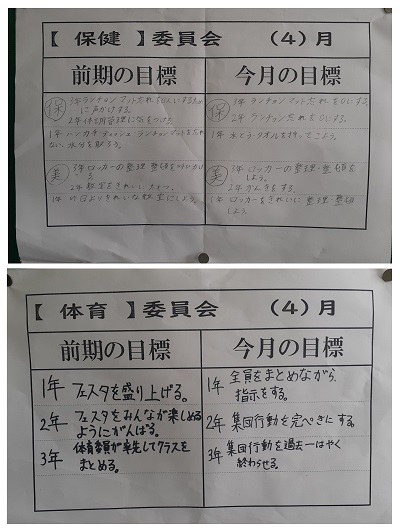 【 保健 】委員会 （4）月
前期の目標
今月の目標
保
3年 ランチョンマットたれを0にするために声かけする。
2年 体育館管理に気をつける
1年 ハンカチ ティッシュ ランチョンマットをたれない。水分を取ろう。
保
3年 ランチョンマットたれを0にする。
2年 ランチョンたれを0にする。
1年 水とう・タオルを持ってこよう。
美
3年 ロッカーの整理・整頓を
2年 教室をきれいにたもつ。
1年 昨日よりきれいな教室にしよう。
美
3年 ロッカーの整理・整頓をしよう。
2年 かんきをする。
1年 ロッカーをきれいに整理・整頓しよう。
【 体育 】委員会 （4）月
前期の目標
今月の目標
1年 フェスタを盛り上げる。
2年 フェスタをみんなが楽しめる
ようにがんばる。
3年 体育委員が率先してクラスを
まとめる。
1年 全員をまとめながら、
指示をする。
2年 集団行動を完ぺきにする。
3年 集団行動を過去一はやく
終わらせる。